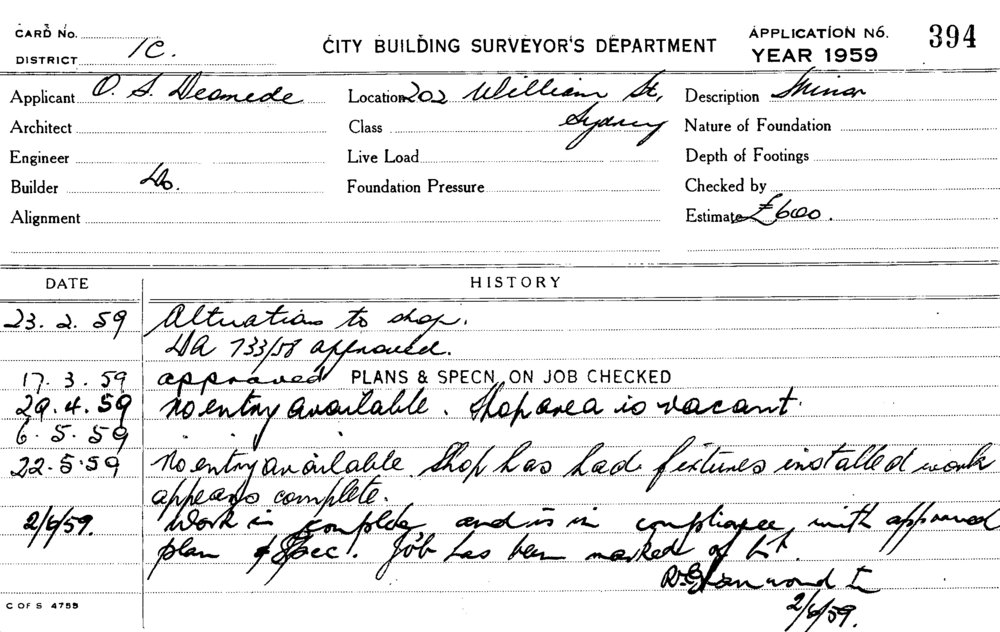 CARD No.
DISTRICT 1C.
CITY BUILDING SURVEYOR'S DEPARTMENT
APPLICATION No. 394
YEAR 1959
Applicant O. S. Location 202 William St, Description Minor
Architect Class Sydney Nature of Foundation
Engineer Live Load Depth of Footings
Builder Do. Foundation Pressure Checked by
Alignment Estimate £600.
DATE HISTORY
23. 2. 59 Alterations to shop.
DA 733/58 approved.
17. 3. 59 approved PLANS & SPECN. ON JOB CHECKED
29. 4. 59 No entry available. Shop area is vacant.
6. 5. 59 " " "
22. 5. 59 No entry available. Shop has had fixtures installed work
appears complete.
2/6/59. Work is complete and is in compliance with approved
plan & spec. Job has been marked off
2/6/59.
C OF S 4755